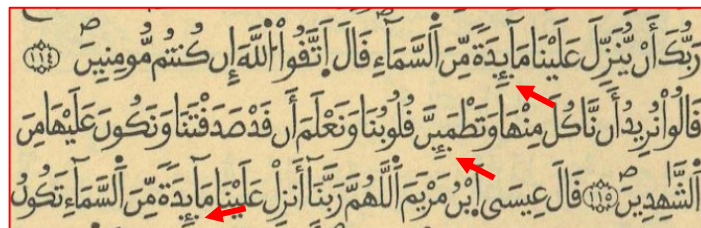 رَبُّكَ أَنْ يُّنَزِّلَ عَلَيْنَا مَآئِدَةً مِّنَ اَ۬لسَّمَآءِ قَالَ اَ۪تَّقُواْ اُ۬للَّهَ إِن كُنتُم مُّومِنِينَۖ ١١٤
قَالُواْ نُرِيدُ أَن نَّاكُلَ مِنْهَا وَتَطْمَئِنَّ قُلُوبُنَا وَنَعْلَمَ أَن قَدْ صَدَقْتَنَا وَنَكُونَ عَلَيْهَا مِنَ
اَ۬لشَّٰهِدِينَۖ ١١٥ قَالَ عِيسَى اَ۪بْنُ مَرْيَمَ اَ۬للَّهُمَّ رَبَّنَآ أَنزِلْ عَلَيْنَا مَآئِدَةً مِّنَ اَ۬لسَّمَآءِ تَكُونُ